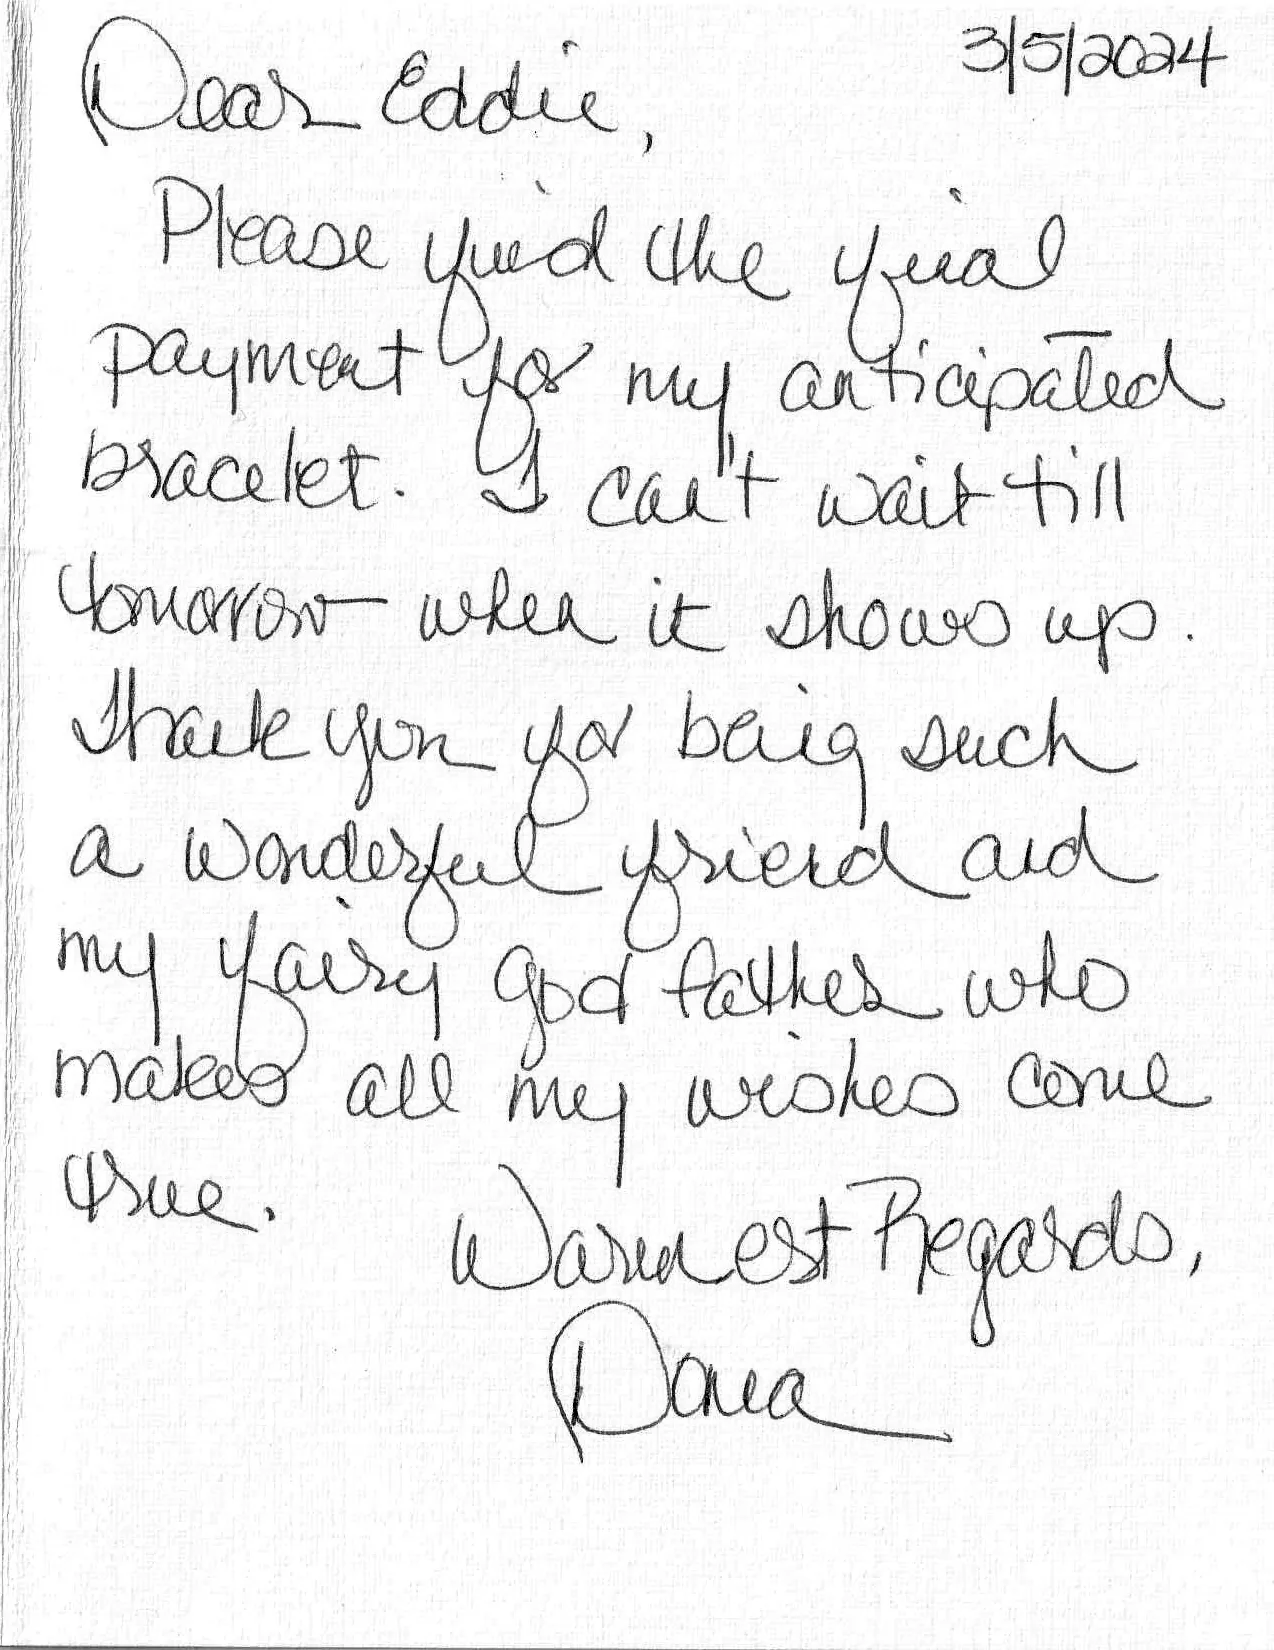 3/5/2024
Dear Eddie,
Please find the final
payment for my anticipated
bracelet. I can't wait till
tomorrow when it shows up.
Thank you for being such
a wonderful friend and
my fairy god father who
makes all my wishes come
true.
Warmest Regards,
Dana